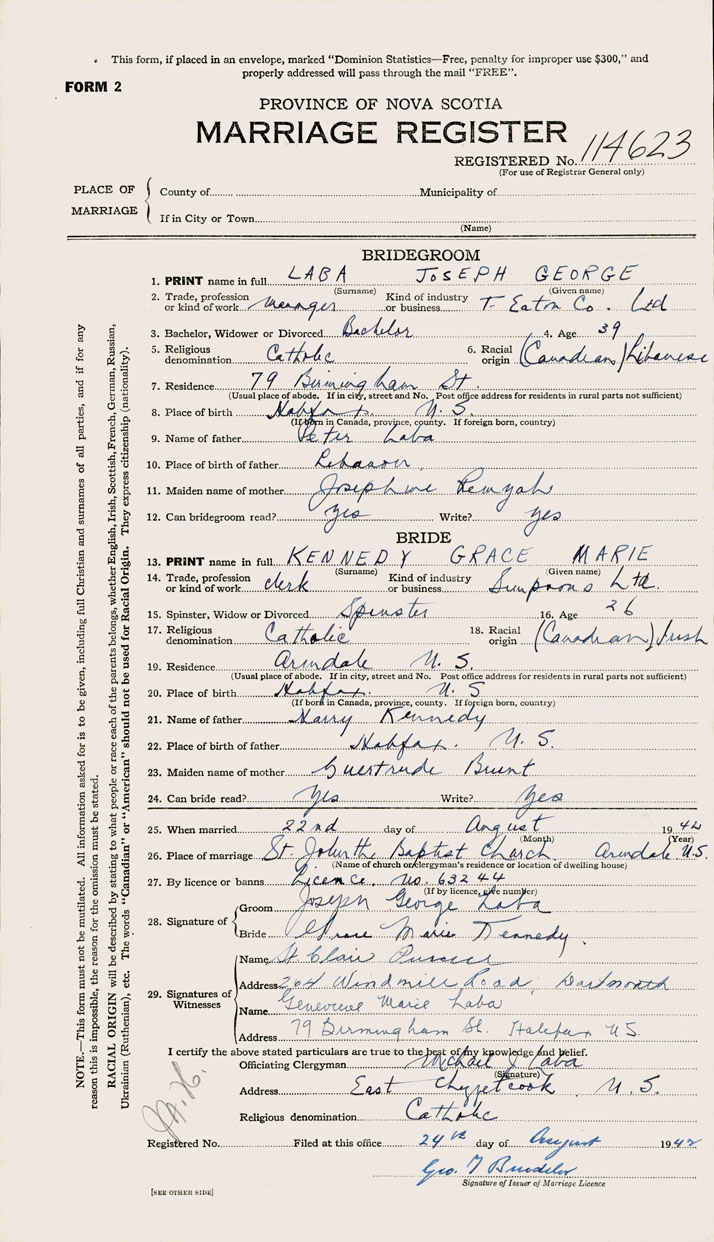 This form, if placed in an envelope, marked "Dominion Statistics—Free, penalty for improper use $300," and
properly addressed will pass through the mail "FREE".
FORM 2
PROVINCE OF NOVA SCOTIA
MARRIAGE REGISTER
REGISTERED No. 114623
(For use of Registrar General only)
PLACE OF MARRIAGE
County of Municipality of
If in City or Town
(Name)
BRIDEGROOM
1. PRINT name in full LABA JOSEPH GEORGE
(Surname) (Given name)
2. Trade, profession or kind of work Manager Kind of industry or business T. Eaton Co. Ltd
3. Bachelor, Widower or Divorced Bachelor 4. Age 39
5. Religious denomination Catholic 6. Racial origin (Canadian) Libanese
7. Residence 79 Birmingham St.
(Usual place of abode. If in city, street and No. Post office address for residents in rural parts not sufficient)
8. Place of birth Halifax N.S.
(If born in Canada, province, county. If foreign born, country)
9. Name of father Peter Laba
10. Place of birth of father Lebanon.
11. Maiden name of mother Josephine
12. Can bridegroom read? yes Write? yes
BRIDE
13. PRINT name in full KENNEDY GRACE MARIE
(Surname) (Given name)
14. Trade, profession or kind of work clerk Kind of industry or business Simpsons Ltd.
15. Spinster, Widow or Divorced Spinster 16. Age 26
17. Religious denomination Catholic 18. Racial origin (Canadian) Irish
19. Residence Armdale N.S.
(Usual place of abode. If in city, street and No. Post office address for residents in rural parts not sufficient)
20. Place of birth Halifax. N.S
(If born in Canada, province, county. If foreign born, country)
21. Name of father Harry Kennedy
22. Place of birth of father Halifax. N.S.
23. Maiden name of mother Guertrude Brunt
24. Can bride read? Yes Write? Yes
25. When married 22nd day of August 1942
(Month) (Year)
26. Place of marriage St. John the Baptist Church Armdale N.S.
(Name of church or clergyman's residence or location of dwelling house)
27. By licence or banns Licence. No. 63244
(If by licence, give number)
28. Signature of
Groom Joseph George Laba
Bride Grace Marie Kennedy.
29. Signatures of Witnesses
Name St. Clair
Address 264 Windmill Road, Dartmouth
Name Genevieve Marie Laba
Address 79 Birmingham St. Halifax N.S.
I certify the above stated particulars are true to the best of my knowledge and belief.
Officiating Clergyman Michael J Laba
(Signature)
Address East Chezzetcook, N.S.
Religious denomination Catholic
Registered No. Filed at this office 24th day of August 1942
Geo. T
Signature of Issuer of Marriage Licence
[SEE OTHER SIDE]
NOTE.—This form must not be mutilated. All information asked for is to be given, including full Christian and surnames of all parties, and if for any
reason this is impossible, the reason for the omission must be stated.
RACIAL ORIGIN will be described by stating to what people or race each of the parents belongs, whether English, Irish, Scottish, French, German, Russian,
Ukrainian (Ruthenian), etc. The words "Canadian" or "American" should not be used for Racial Origin. They express citizenship (nationality).